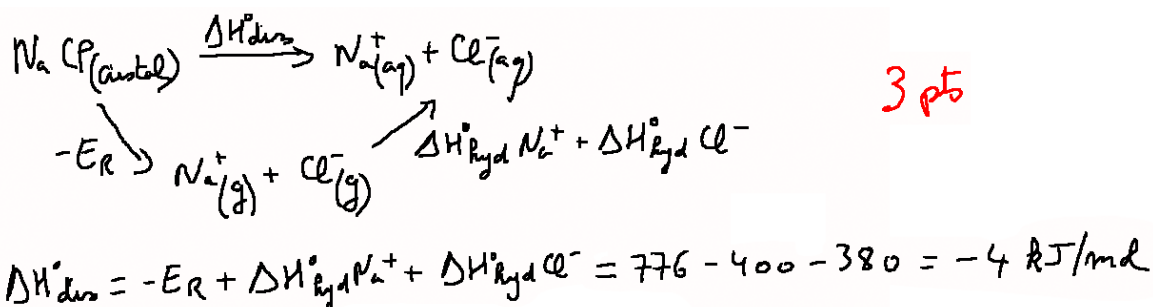 NaCl(cristal) ΔH°diss → Na⁺(aq) + Cl⁻(aq)
3 pts
-E_R Na⁺(g) + Cl⁻(g) ΔH°hyd Na⁺ + ΔH°hyd Cl⁻
ΔH°diss = -E_R + ΔH°hyd Na⁺ + ΔH°hyd Cl⁻ = 776 - 400 - 380 = -4 kJ/mol